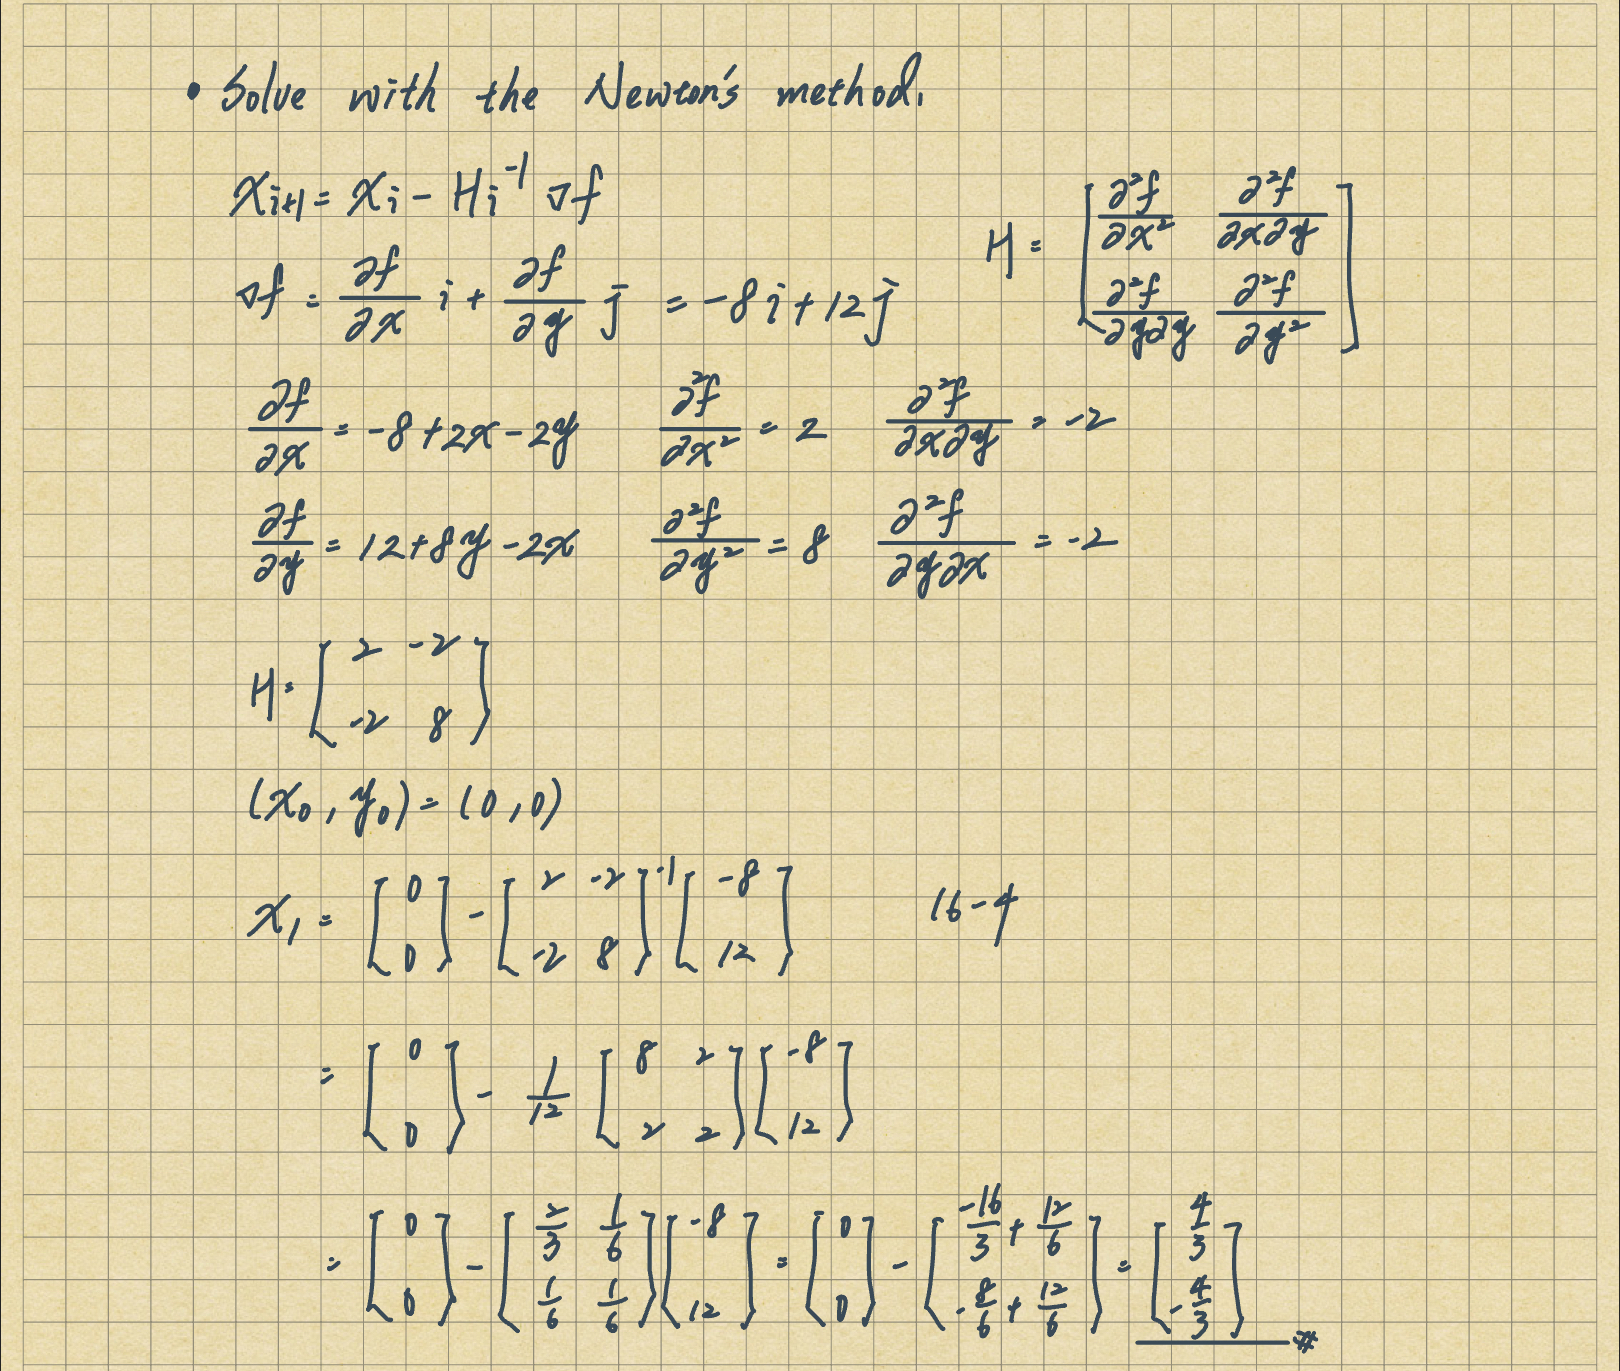 • Solve with the Newton's method.
X_{i+1} = X_i - H_i^{-1} ∇f
H = [ ∂²f/∂x² ∂²f/∂x∂y ; ∂²f/∂y∂y ∂²f/∂y² ]
∇f = ∂f/∂x i + ∂f/∂y j = -8i + 12j
∂f/∂x = -8+2x-2y ∂²f/∂x² = 2 ∂²f/∂x∂y = -2
∂f/∂y = 12+8y-2x ∂²f/∂y² = 8 ∂²f/∂y∂x = -2
H = [ 2 -2 ; -2 8 ]
(x₀, y₀) = (0, 0)
X₁ = [ 0 ; 0 ] - [ 2 -2 ; -2 8 ]^{-1} [ -8 ; 12 ] 16-4
= [ 0 ; 0 ] - 1/12 [ 8 2 ; 2 2 ] [ -8 ; 12 ]
= [ 0 ; 0 ] - [ 2/3 1/6 ; 1/6 1/6 ] [ -8 ; 12 ] = [ 0 ; 0 ] - [ -16/3 + 12/6 ; -8/6 + 12/6 ] = [ 4/3 ; -4/3 ] #